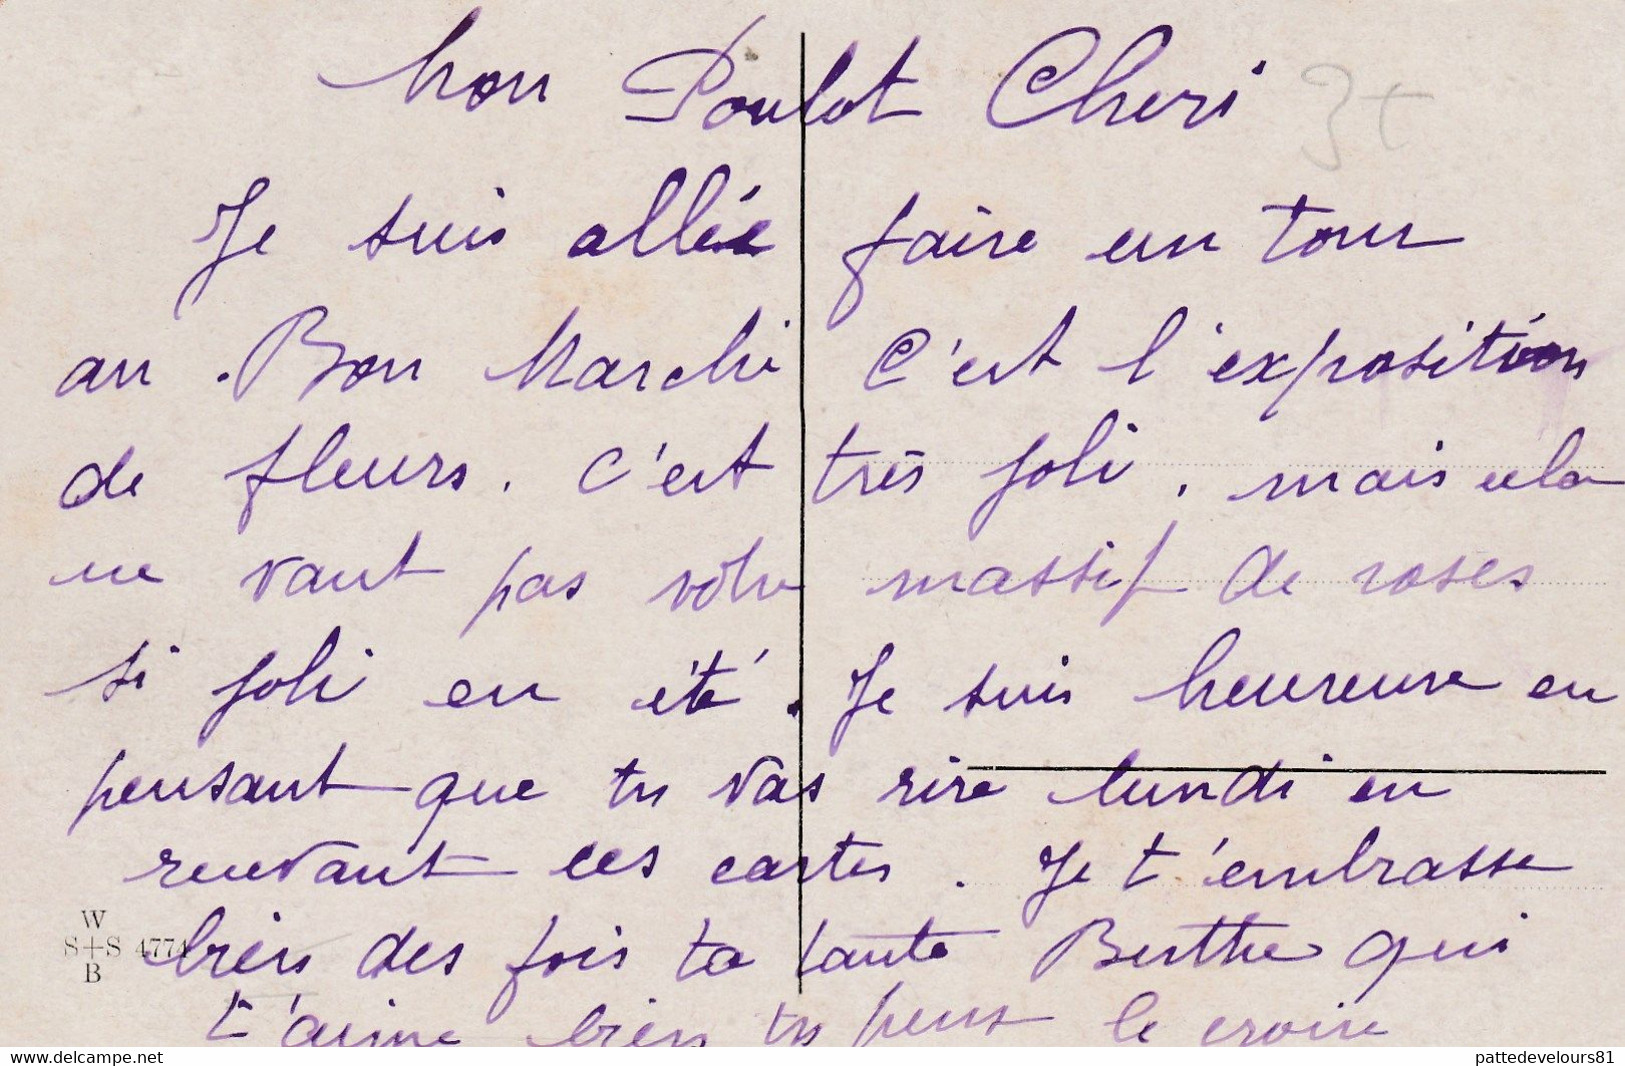 Mon Poulot Cheri 3+
Je suis allée faire un tour
au Bon Marché C'est l'exposition
de fleurs. C'est très joli, mais cela
ne vaut pas votre massif de roses
si joli en été. Je suis heureuse en
pensant que tu vas rire lundi en
recevant ces cartes. Je t'embrasse
bien des fois ta tante Berthe qui
t'aime bien tu peux le croire
W
S+S 4774
B
www.delcampe.net
pattedevelours81